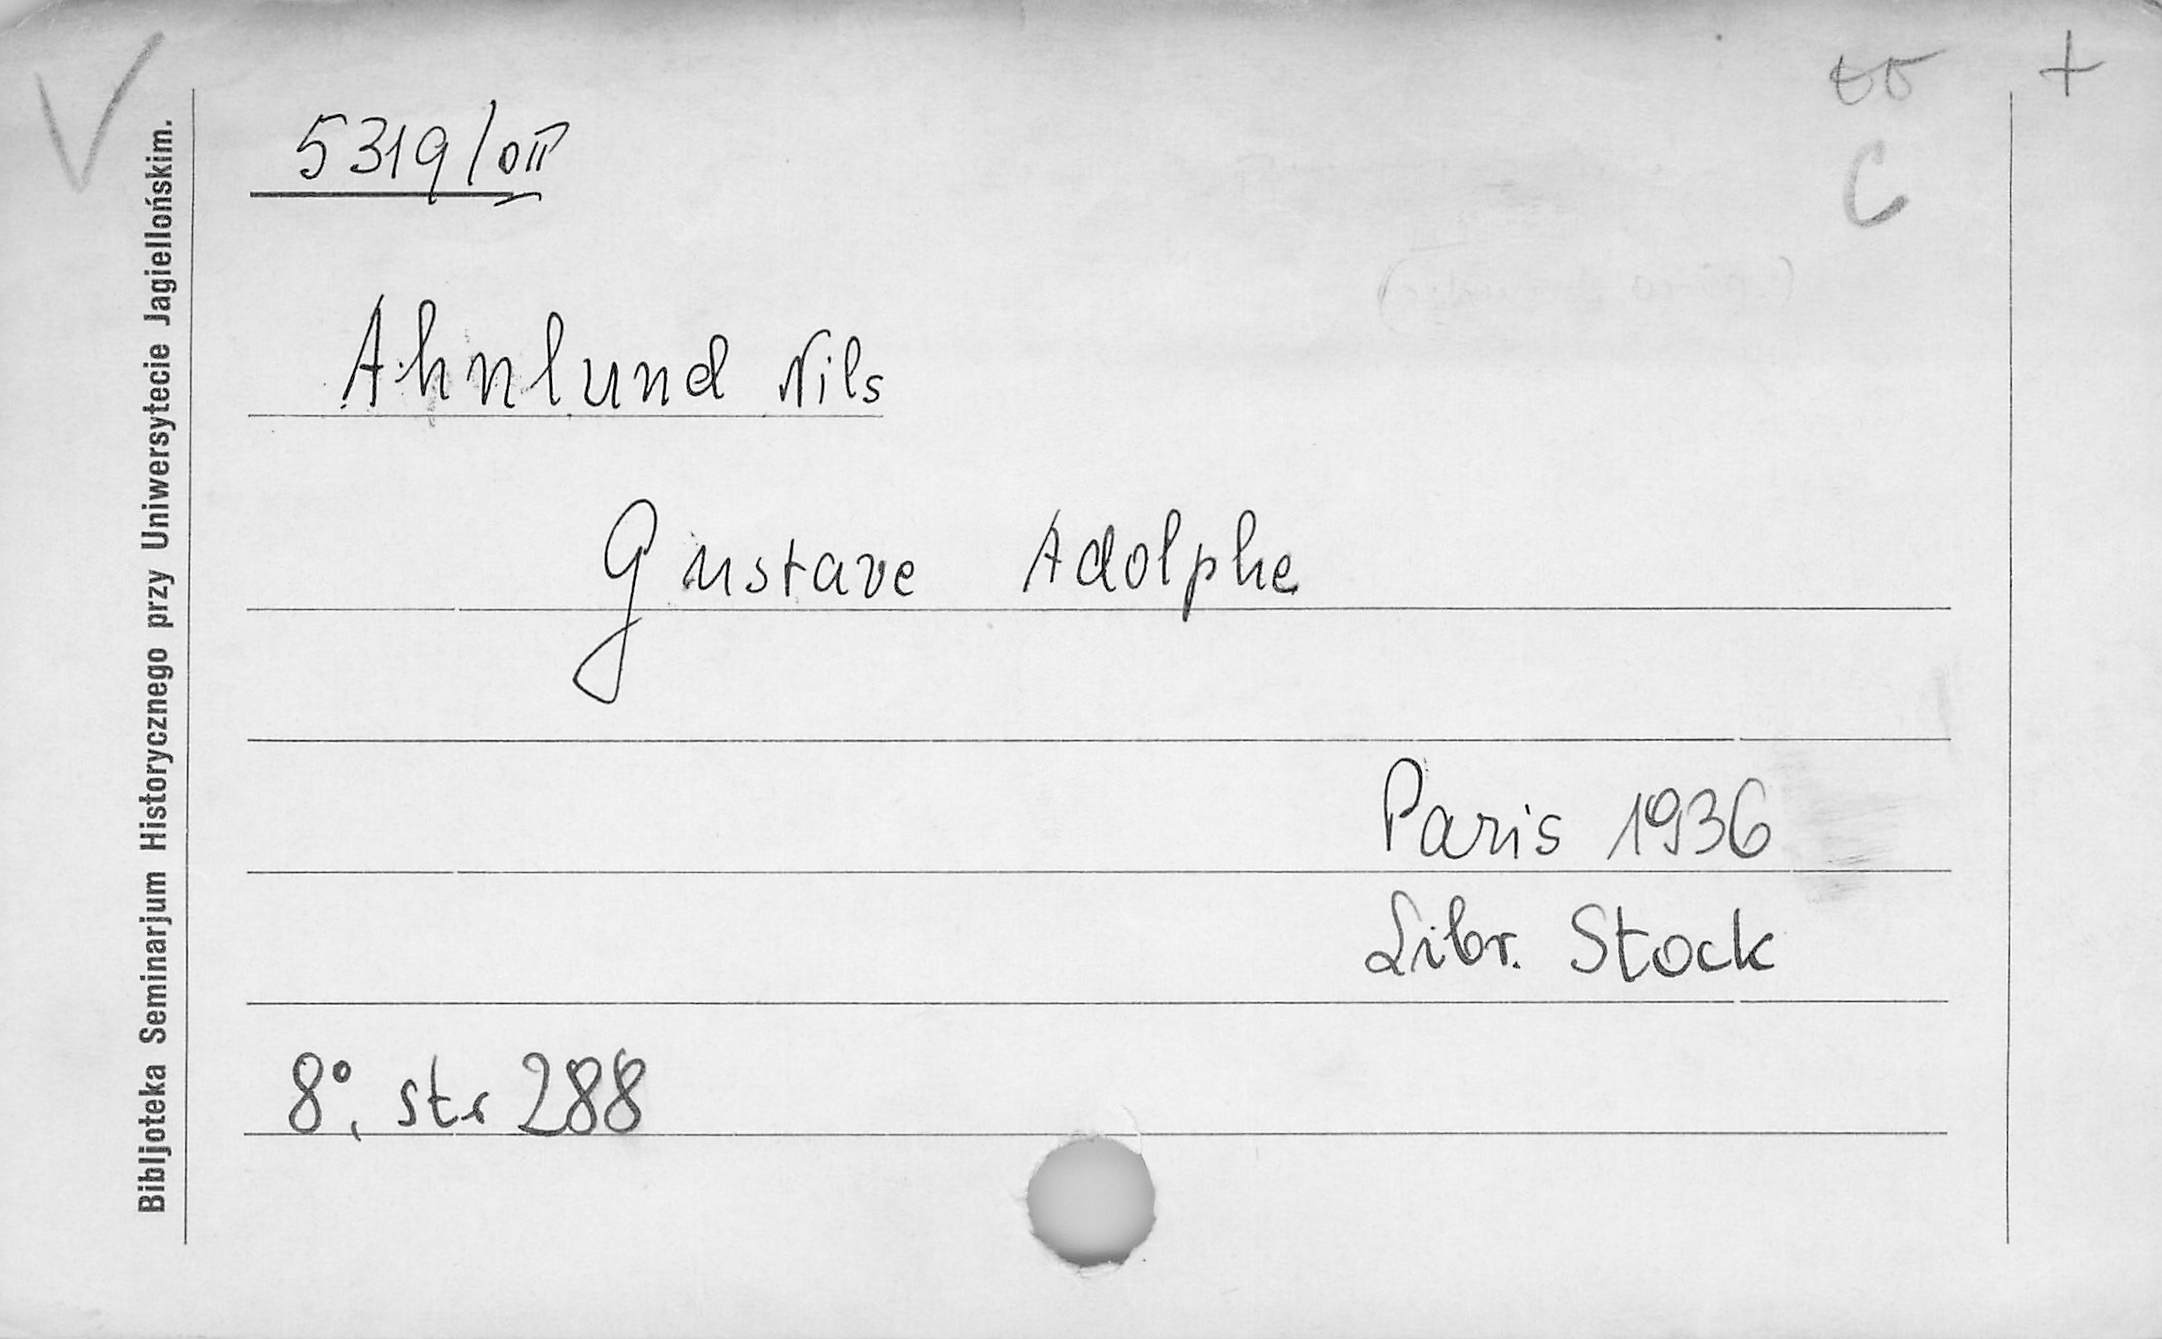 5319/OII
Ahnlund Nils
Gustave Adolphe
Paris 1936
Libr. Stock
8°, str 288
Bibljoteka Seminarjum Historycznego przy Uniwersytecie Jagiellońskim.
V
+
C